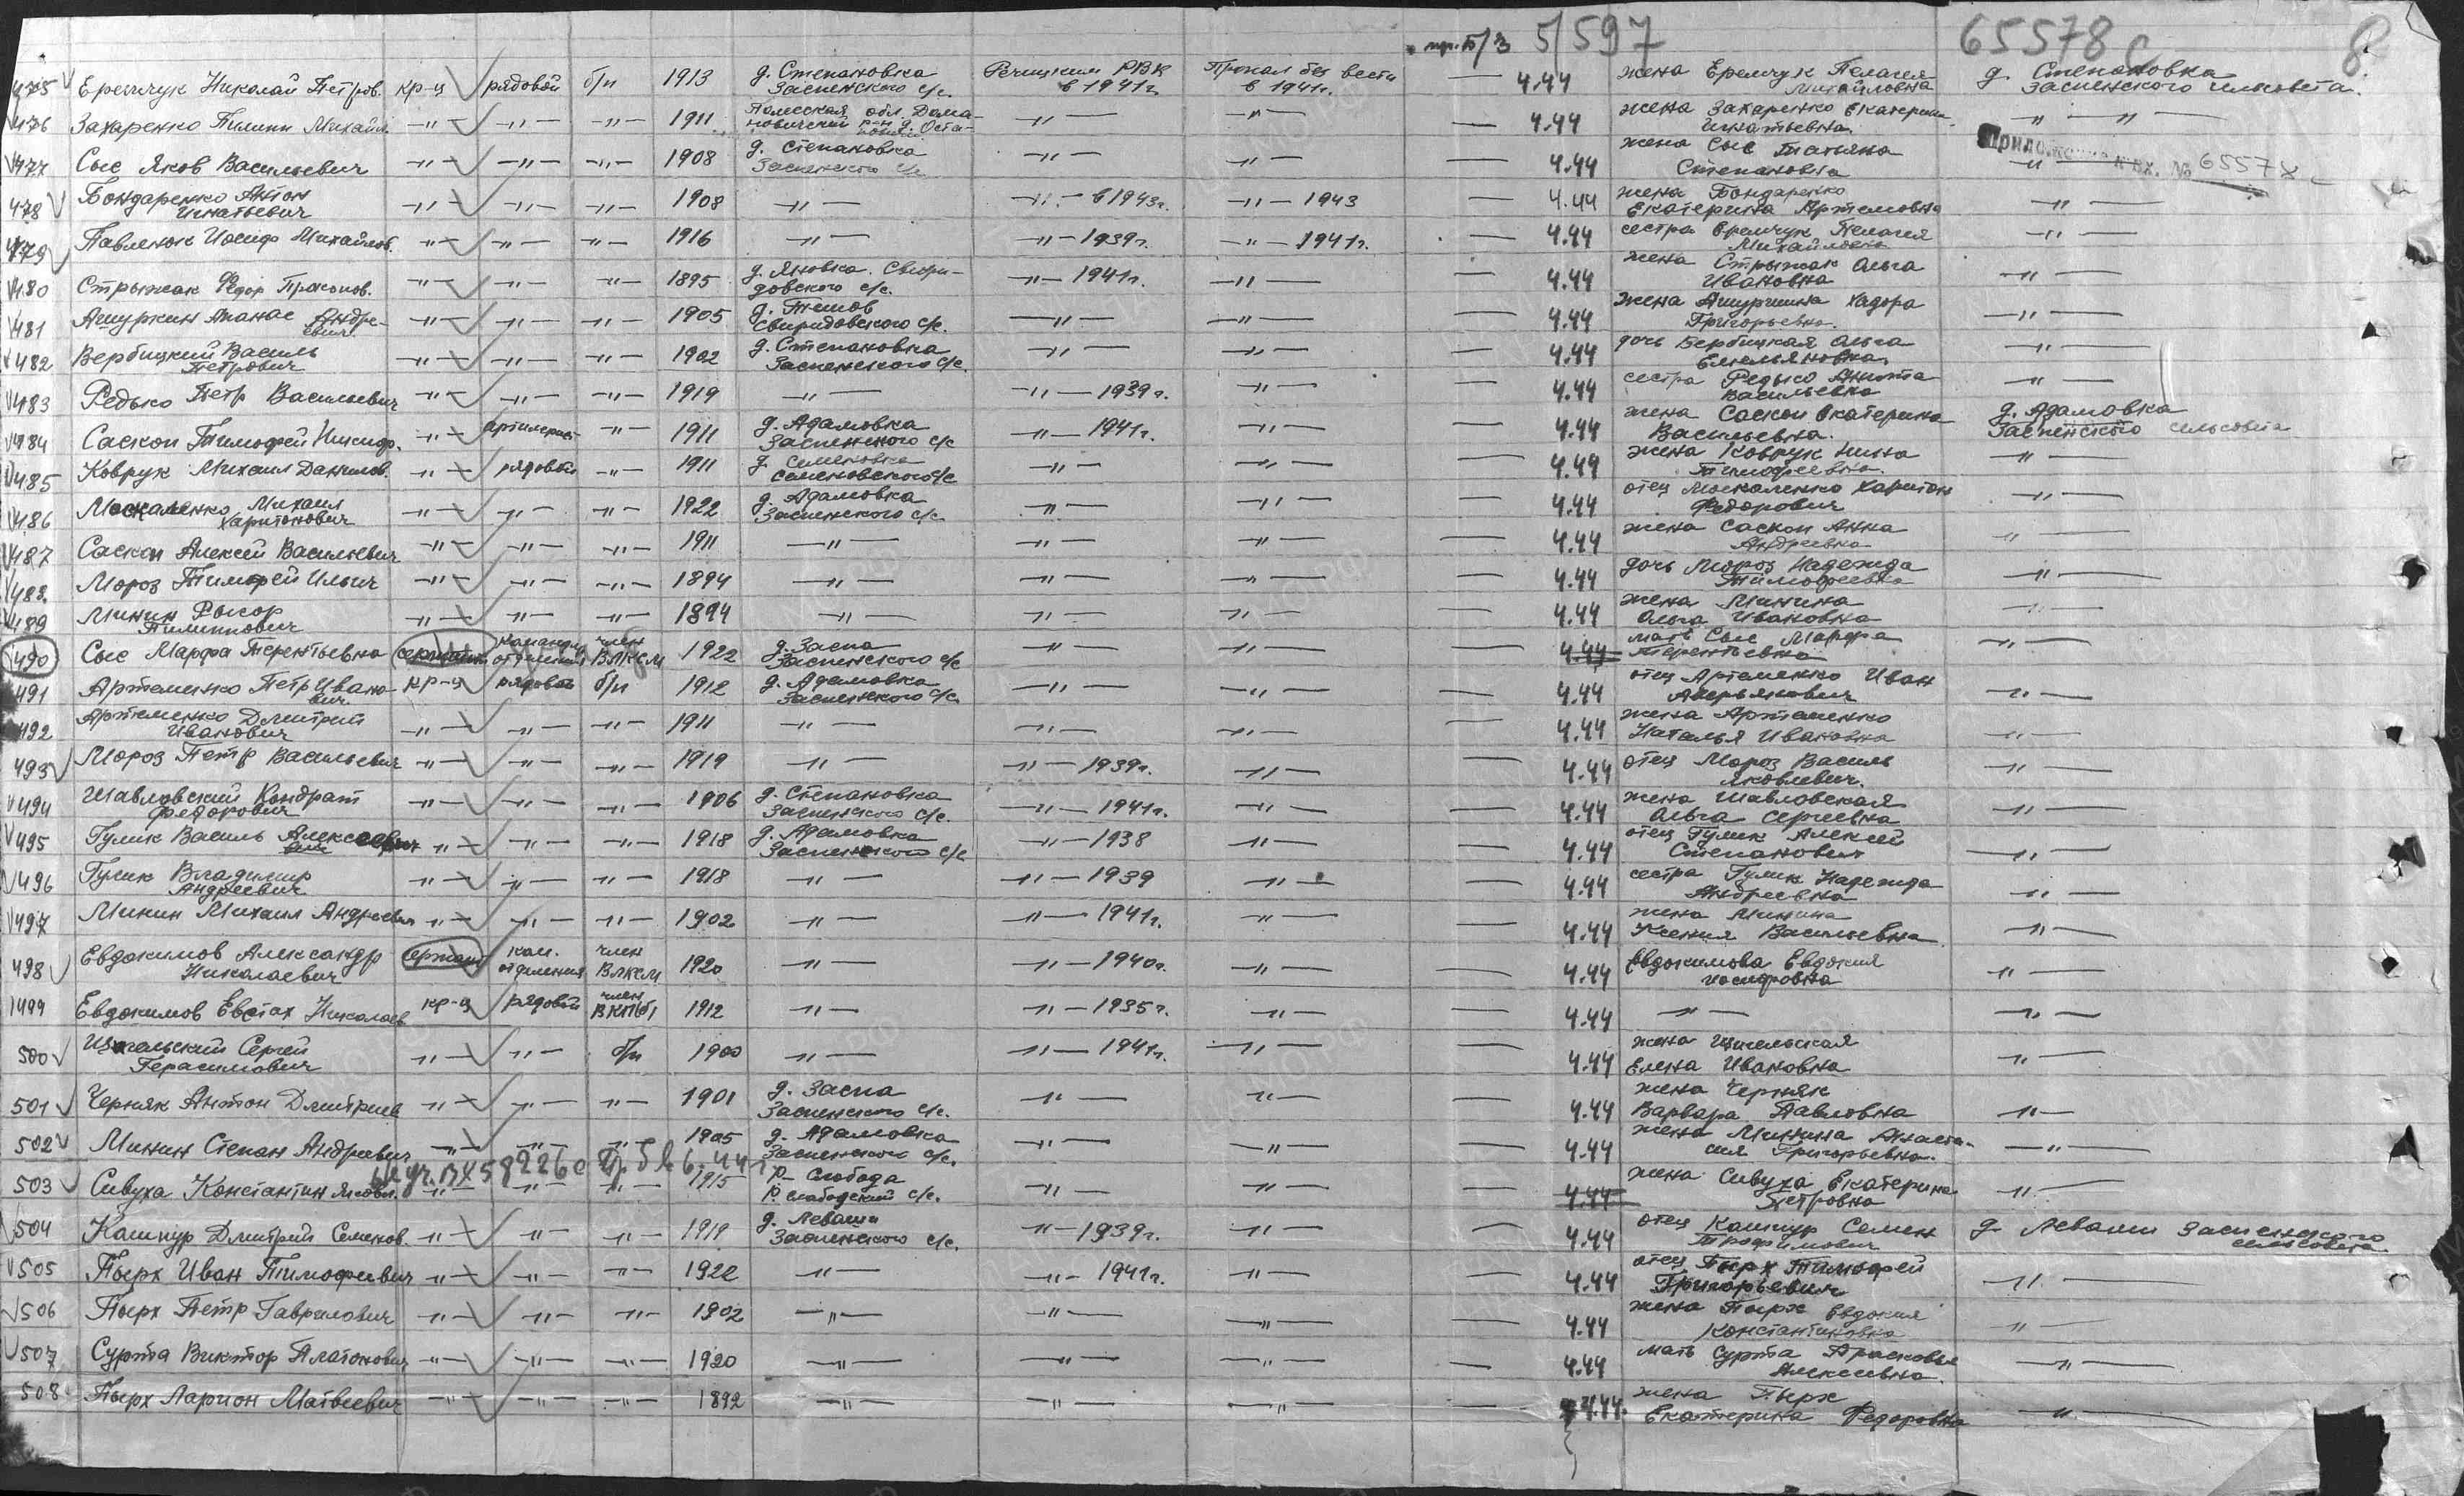 пр. б/з 5/597 65578с 8
475 Еремчук Николай Петров. кр-ц рядовой б/п 1913 д. Степановка Заспенского с/с. Речицким РВК в 1941г. Пропал без вести в 1941г. — 4.44 жена Еремчук Пелагея Михайловна д. Степановка Заспенского сельсовета.
476 Захаренко Пилипп Михайл. -"- -"- -"- 1911 Полесская обл. Домановичский р-н д. -"- -"- — 4.44 жена Захаренко Екатерина Игнатьевна. -"- -"-
Приложение к вх. № 65578с
477 Сыс Яков Васильевич -"- -"- -"- 1908 д. Степановка Заспенского с/с -"- -"- 4.44 жена Сыс Татьяна Степановна -"-
478 Бондаренко Антон Игнатьевич -"- -"- -"- 1908 -"- -"- в 1943г. -"- 1943 — 4.44 жена Бондаренко Екатерина Артемовна -"-
479 Павленок Иосиф Михайлов. -"- -"- -"- 1916 -"- -"- 1939г. -"- 1941г. — 4.44 сестра Еремчук Пелагея Михайловна -"-
480 Стрыжак Федор Прокопов. -"- -"- -"- 1895 д. Яновка Свиридовского с/с. -"- 1941г. -"- — 4.44 жена Стрыжак Ольга Ивановна -"-
481 Ашуркин Апанас Андреевич -"- -"- -"- 1905 д. Тишов Свиридовского с/с. -"- -"- — 4.44 жена Ашуркина Хадора Григорьевна. -"-
482 Вербицкий Василь Петрович -"- -"- -"- 1902 д. Степановка Заспенского с/с. -"- -"- — 4.44 дочь Вербицкая Ольга Емельяновна -"-
483 Редько Петр Васильевич -"- -"- -"- 1919 -"- -"- 1939г. -"- — 4.44 сестра Редько Васильевна -"-
484 Саскон Тимофей Никифр. -"- артилерист -"- 1911 д. Адамовка Заспенского с/с -"- 1941г. -"- — 4.44 жена Саскон Екатерина Васильевна. д. Адамовка Заспенского сельсовета
485 Коврук Михаил Данилов. -"- рядовой -"- 1911 д. Семеновка Семеновского с/с -"- -"- — 4.44 жена Коврук Нина Тимофеевна. -"-
486 Москаленко Михаил Харитонович -"- -"- -"- 1922 д. Адамовка Заспенского с/с -"- -"- — 4.44 отец Москаленко Харитон Федорович -"-
487 Саскон Алексей Васильевич -"- -"- -"- 1911 -"- -"- -"- — 4.44 жена Саскон Анна Андреевна -"-
488 Мороз Тимофей Ильич -"- -"- -"- 1894 -"- -"- -"- — 4.44 дочь Мороз Надежда Тимофеевна -"-
489 Минин Рыгор Пилиппович -"- -"- -"- 1894 -"- -"- -"- — 4.44 жена Минина Ольга Ивановна -"-
490 Сыс Марфа Терентьевна сержант командир отделения член ВЛКСМ 1922 д. Заспа Заспенского с/с -"- -"- — 4.44 мать Сыс Марфа Терентьевна -"-
491 Артеменко Петр Иванович кр-ц рядовой б/п 1912 д. Адамовка Заспенского с/с -"- -"- — 4.44 отец Артеменко Иван Аверьянович -"-
492 Артеменко Дмитрий Иванович -"- -"- -"- 1911 -"- -"- -"- — 4.44 жена Артеменко Наталья Ивановна -"-
493 Мороз Петр Васильевич -"- -"- -"- 1919 -"- -"- 1939г. -"- — 4.44 отец Мороз Василь Яковлевич. -"-
494 Шавловский Кондрат Федорович -"- -"- -"- 1906 д. Степановка Заспенского с/с. -"- 1941г. -"- — 4.44 жена Шавловская Ольга Сергеевна -"-
495 Гулик Василь Алексеевич -"- -"- -"- 1918 д. Адамовка Заспенского с/с -"- 1938 -"- — 4.44 отец Гулик Алексей Степанович -"-
496 Гулик Владимир Андреевич -"- -"- -"- 1918 -"- -"- 1939 -"- — 4.44 сестра Гулик Надежда Андреевна -"-
497 Минин Михаил Андреевич -"- -"- -"- 1902 -"- -"- 1941г. -"- — 4.44 жена Минина Ксения Васильевна -"-
498 Евдокимов Александр Николаевич сержант ком. отделения член ВЛКСМ 1920 -"- -"- 1940г. -"- — 4.44 Евдокимова Евдокия Иосифовна -"-
499 Евдокимов Евстах Николаев кр-ц рядовой член ВКП(б) 1912 -"- -"- 1935г. -"- — 4.44 -"- -"-
500 Сергей Герасимович -"- -"- б/п 1900 -"- -"- 1941г. -"- — 4.44 жена Елена Ивановна -"-
501 Черняк Антон Дмитриев -"- -"- -"- 1901 д. Заспа Заспенского с/с. -"- -"- — 4.44 жена Черняк Варвара Павловна -"-
502 Минин Степан Андреевич -"- -"- -"- 1905 д. Адамовка Заспенского с/с. -"- -"- — 4.44 жена Минина Анастасия Григорьевна. -"-
уч. вх 58226с
503 Сивуха Константин Яковл. -"- -"- -"- 1915 р- Слобода Р. Слободский с/с. -"- -"- — 4.44 жена Сивуха Екатерина Петровна -"-
504 Кашкур Дмитрий Семенов. -"- -"- -"- 1919 д. Леваши Заспенского с/с. -"- 1939г. -"- — 4.44 отец Кашкур Семен Трофимович д. Леваши Заспенского сельсовета
505 Пырх Иван Тимофеевич -"- -"- -"- 1922 -"- -"- 1941г. -"- — 4.44 отец Пырх Тимофей Григорьевич -"-
506 Пырх Петр Гаврилович -"- -"- -"- 1902 -"- -"- -"- — 4.44 жена Пырх Евдокия Константиновна -"-
507 Сурта Виктор Платонович -"- -"- -"- 1920 -"- -"- -"- — 4.44 мать Сурта Прасковья Алексеевна. -"-
508 Пырх Ларион Матвеевич -"- -"- -"- 1892 -"- -"- -"- — 4.44. жена Пырх Екатерина Федоровна -"-